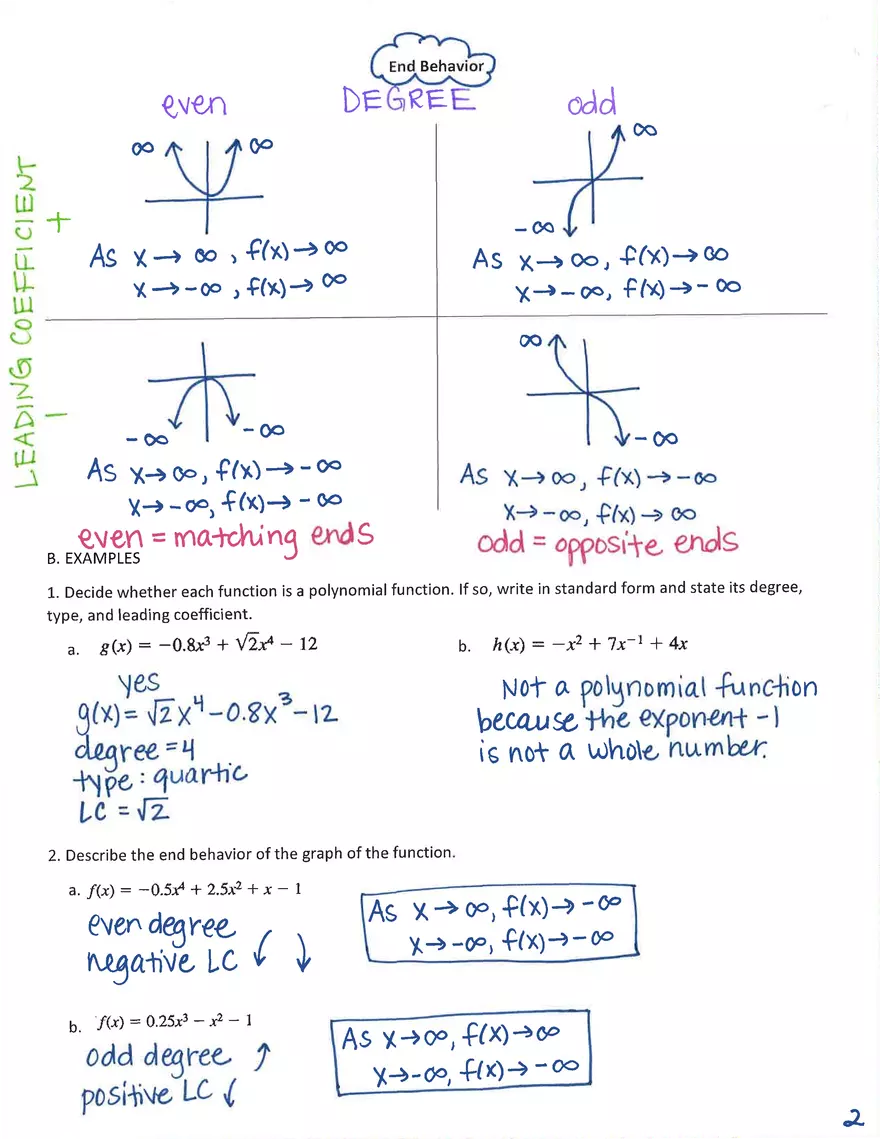 End Behavior
even DEGREE odd
LEADING COEFFICIENT
+
∞ ∞
As x → ∞ , f(x) → ∞
x → -∞ , f(x) → ∞
∞
-∞
As x → ∞, f(x) → ∞
x → -∞, f(x) → -∞
−
-∞ -∞
As x → ∞, f(x) → -∞
x → -∞, f(x) → -∞
even = matching ends
∞
-∞
As x → ∞, f(x) → -∞
x → -∞, f(x) → ∞
odd = opposite ends
B. EXAMPLES
1. Decide whether each function is a polynomial function. If so, write in standard form and state its degree,
type, and leading coefficient.
a. g(x) = −0.8x³ + √2x⁴ − 12
yes
g(x) = √2 x⁴ - 0.8x³ - 12
degree = 4
type : quartic
LC = √2
b. h(x) = −x² + 7x⁻¹ + 4x
Not a polynomial function
because the exponent -1
is not a whole number.
2. Describe the end behavior of the graph of the function.
a. f(x) = −0.5x⁴ + 2.5x² + x − 1
even degree
negative LC
As x → ∞, f(x) → -∞
x → -∞, f(x) → -∞
b. f(x) = 0.25x³ − x² − 1
odd degree
positive LC
As x → ∞, f(x) → ∞
x → -∞, f(x) → -∞
2